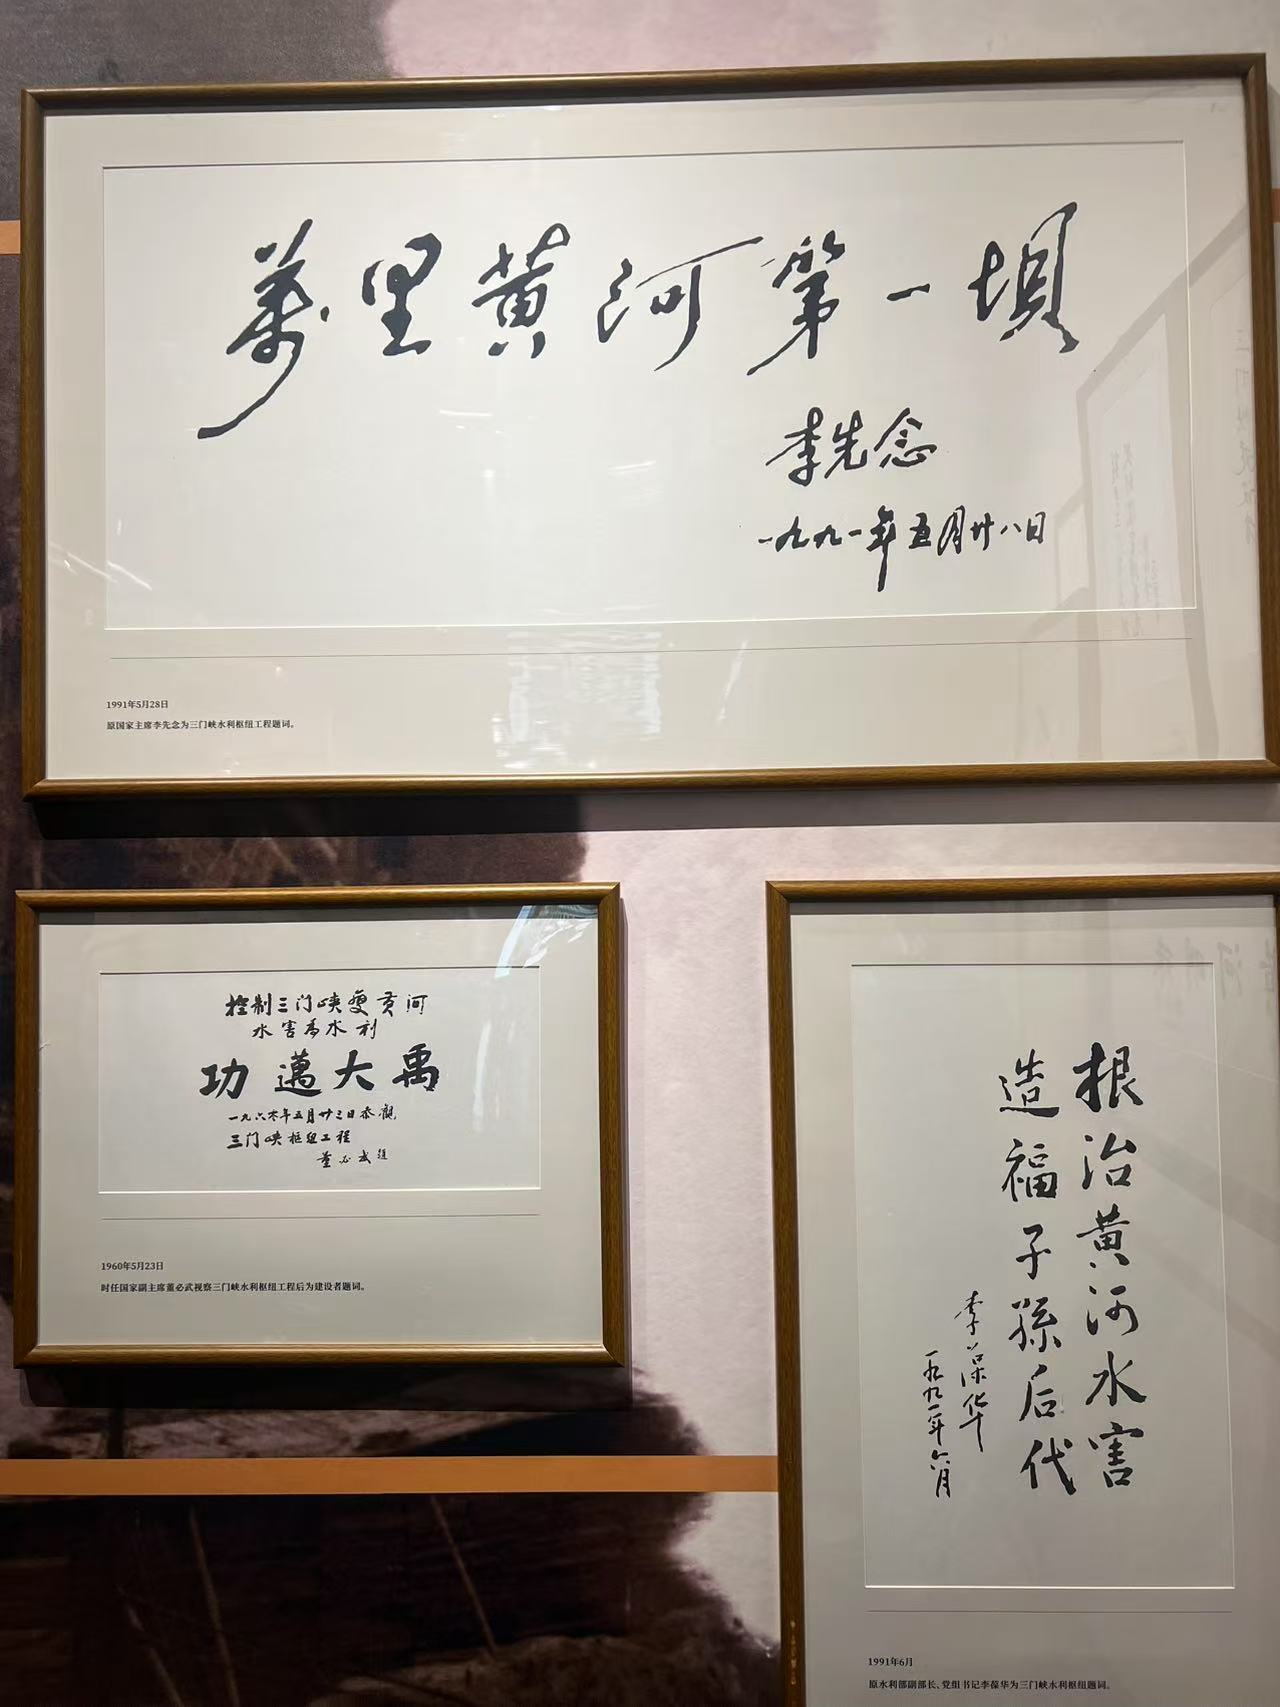 萬里黄河第一坝
李先念
一九九一年五月廿八日
1991年5月28日
原国家主席李先念为三门峡水利枢纽工程题词。
控制三门峡变黄河
水害为水利
功邁大禹
一九六零年五月廿三日参觀
三门峡枢纽工程
董必武題
1960年5月23日
时任国家副主席董必武视察三门峡水利枢纽工程后为建设者题词。
根治黄河水害
造福子孫后代
李葆华
一九九一年六月
1991年6月
原水利部副部长、党组书记李葆华为三门峡水利枢纽题词。